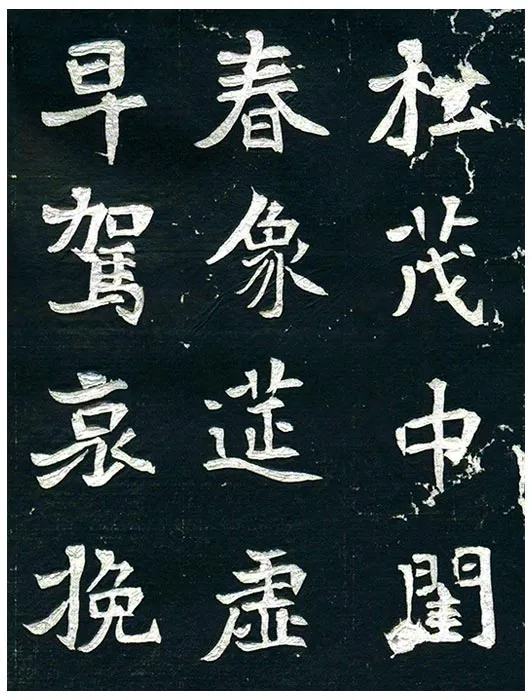 松茂中閨
春象莚虚
早駕哀挽